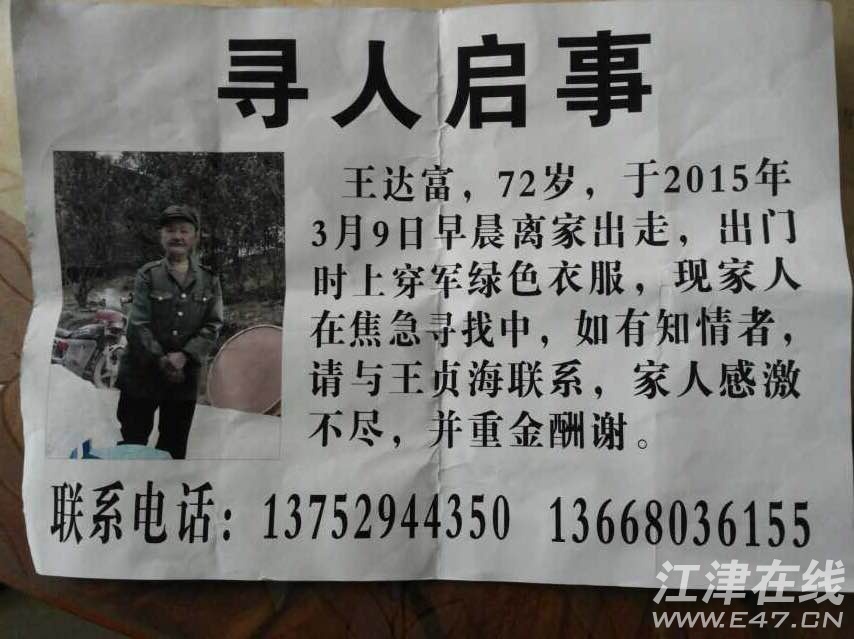 寻人启事
王达富，72岁，于2015年
3月9日早晨离家出走，出门
时上穿军绿色衣服，现家人
在焦急寻找中，如有知情者，
请与王贞海联系，家人感激
不尽，并重金酬谢。
联系电话：13752944350 13668036155
江津在线
WWW.E47.CN